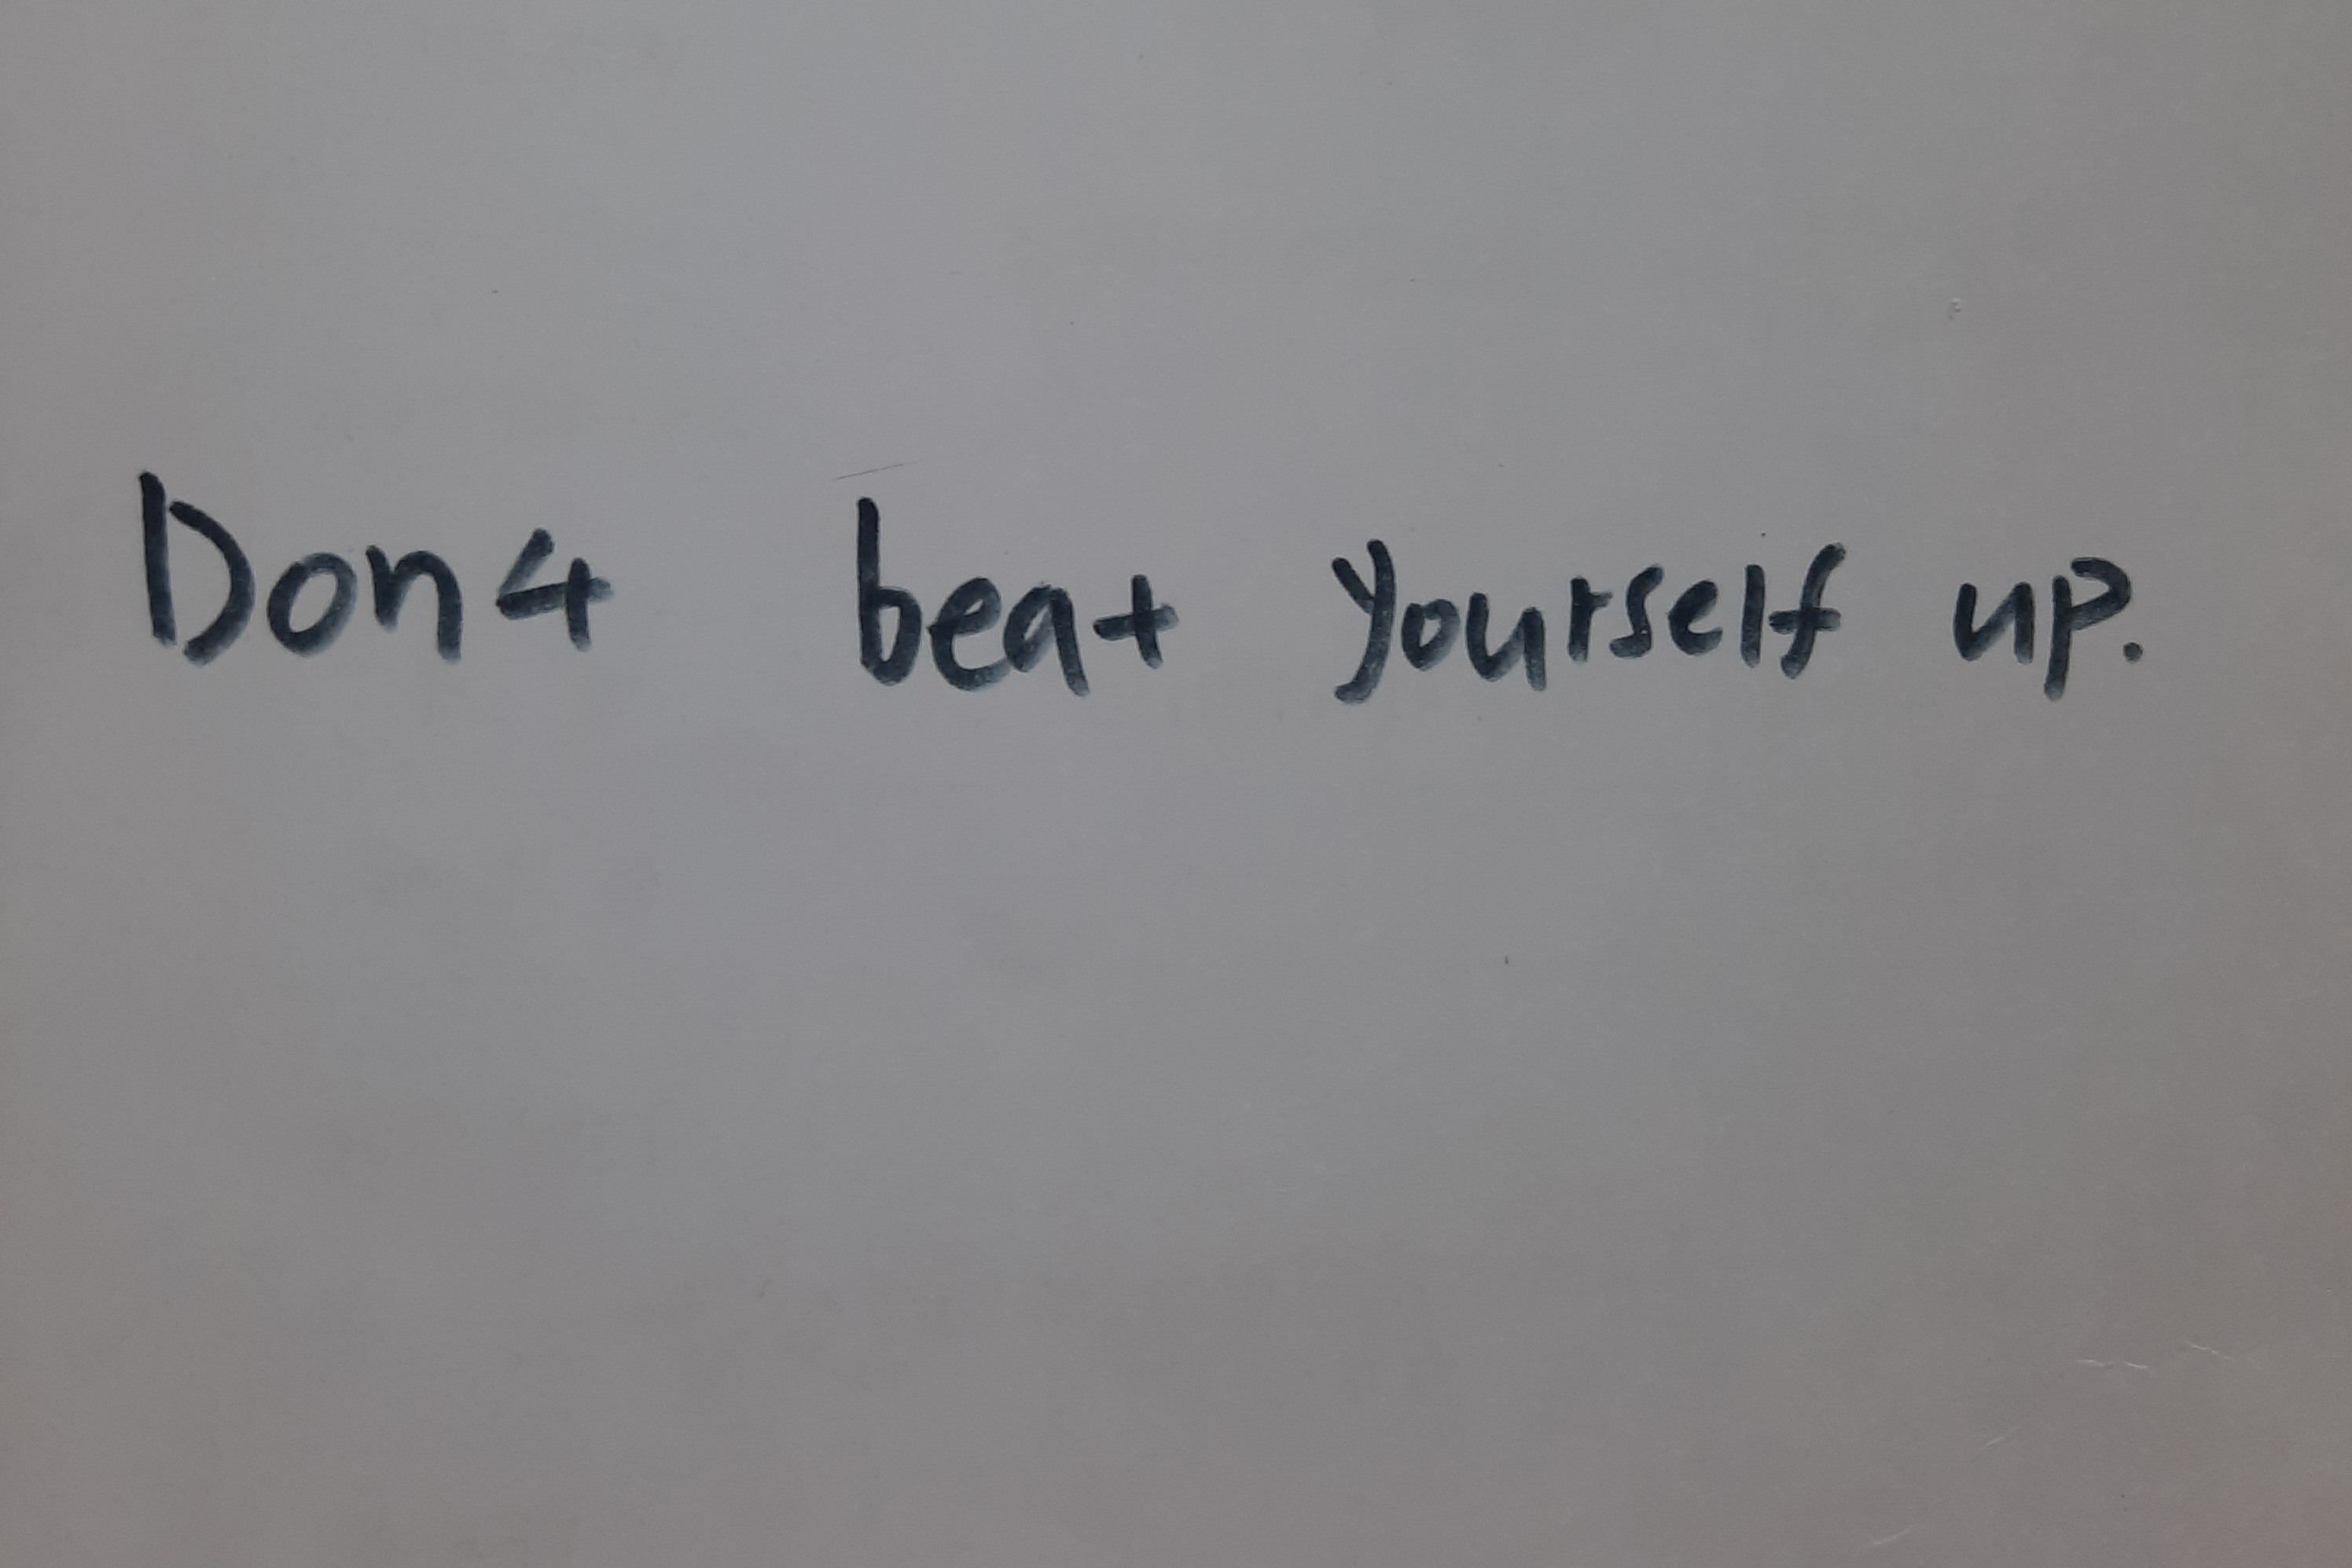 Don4 beat yourself up.